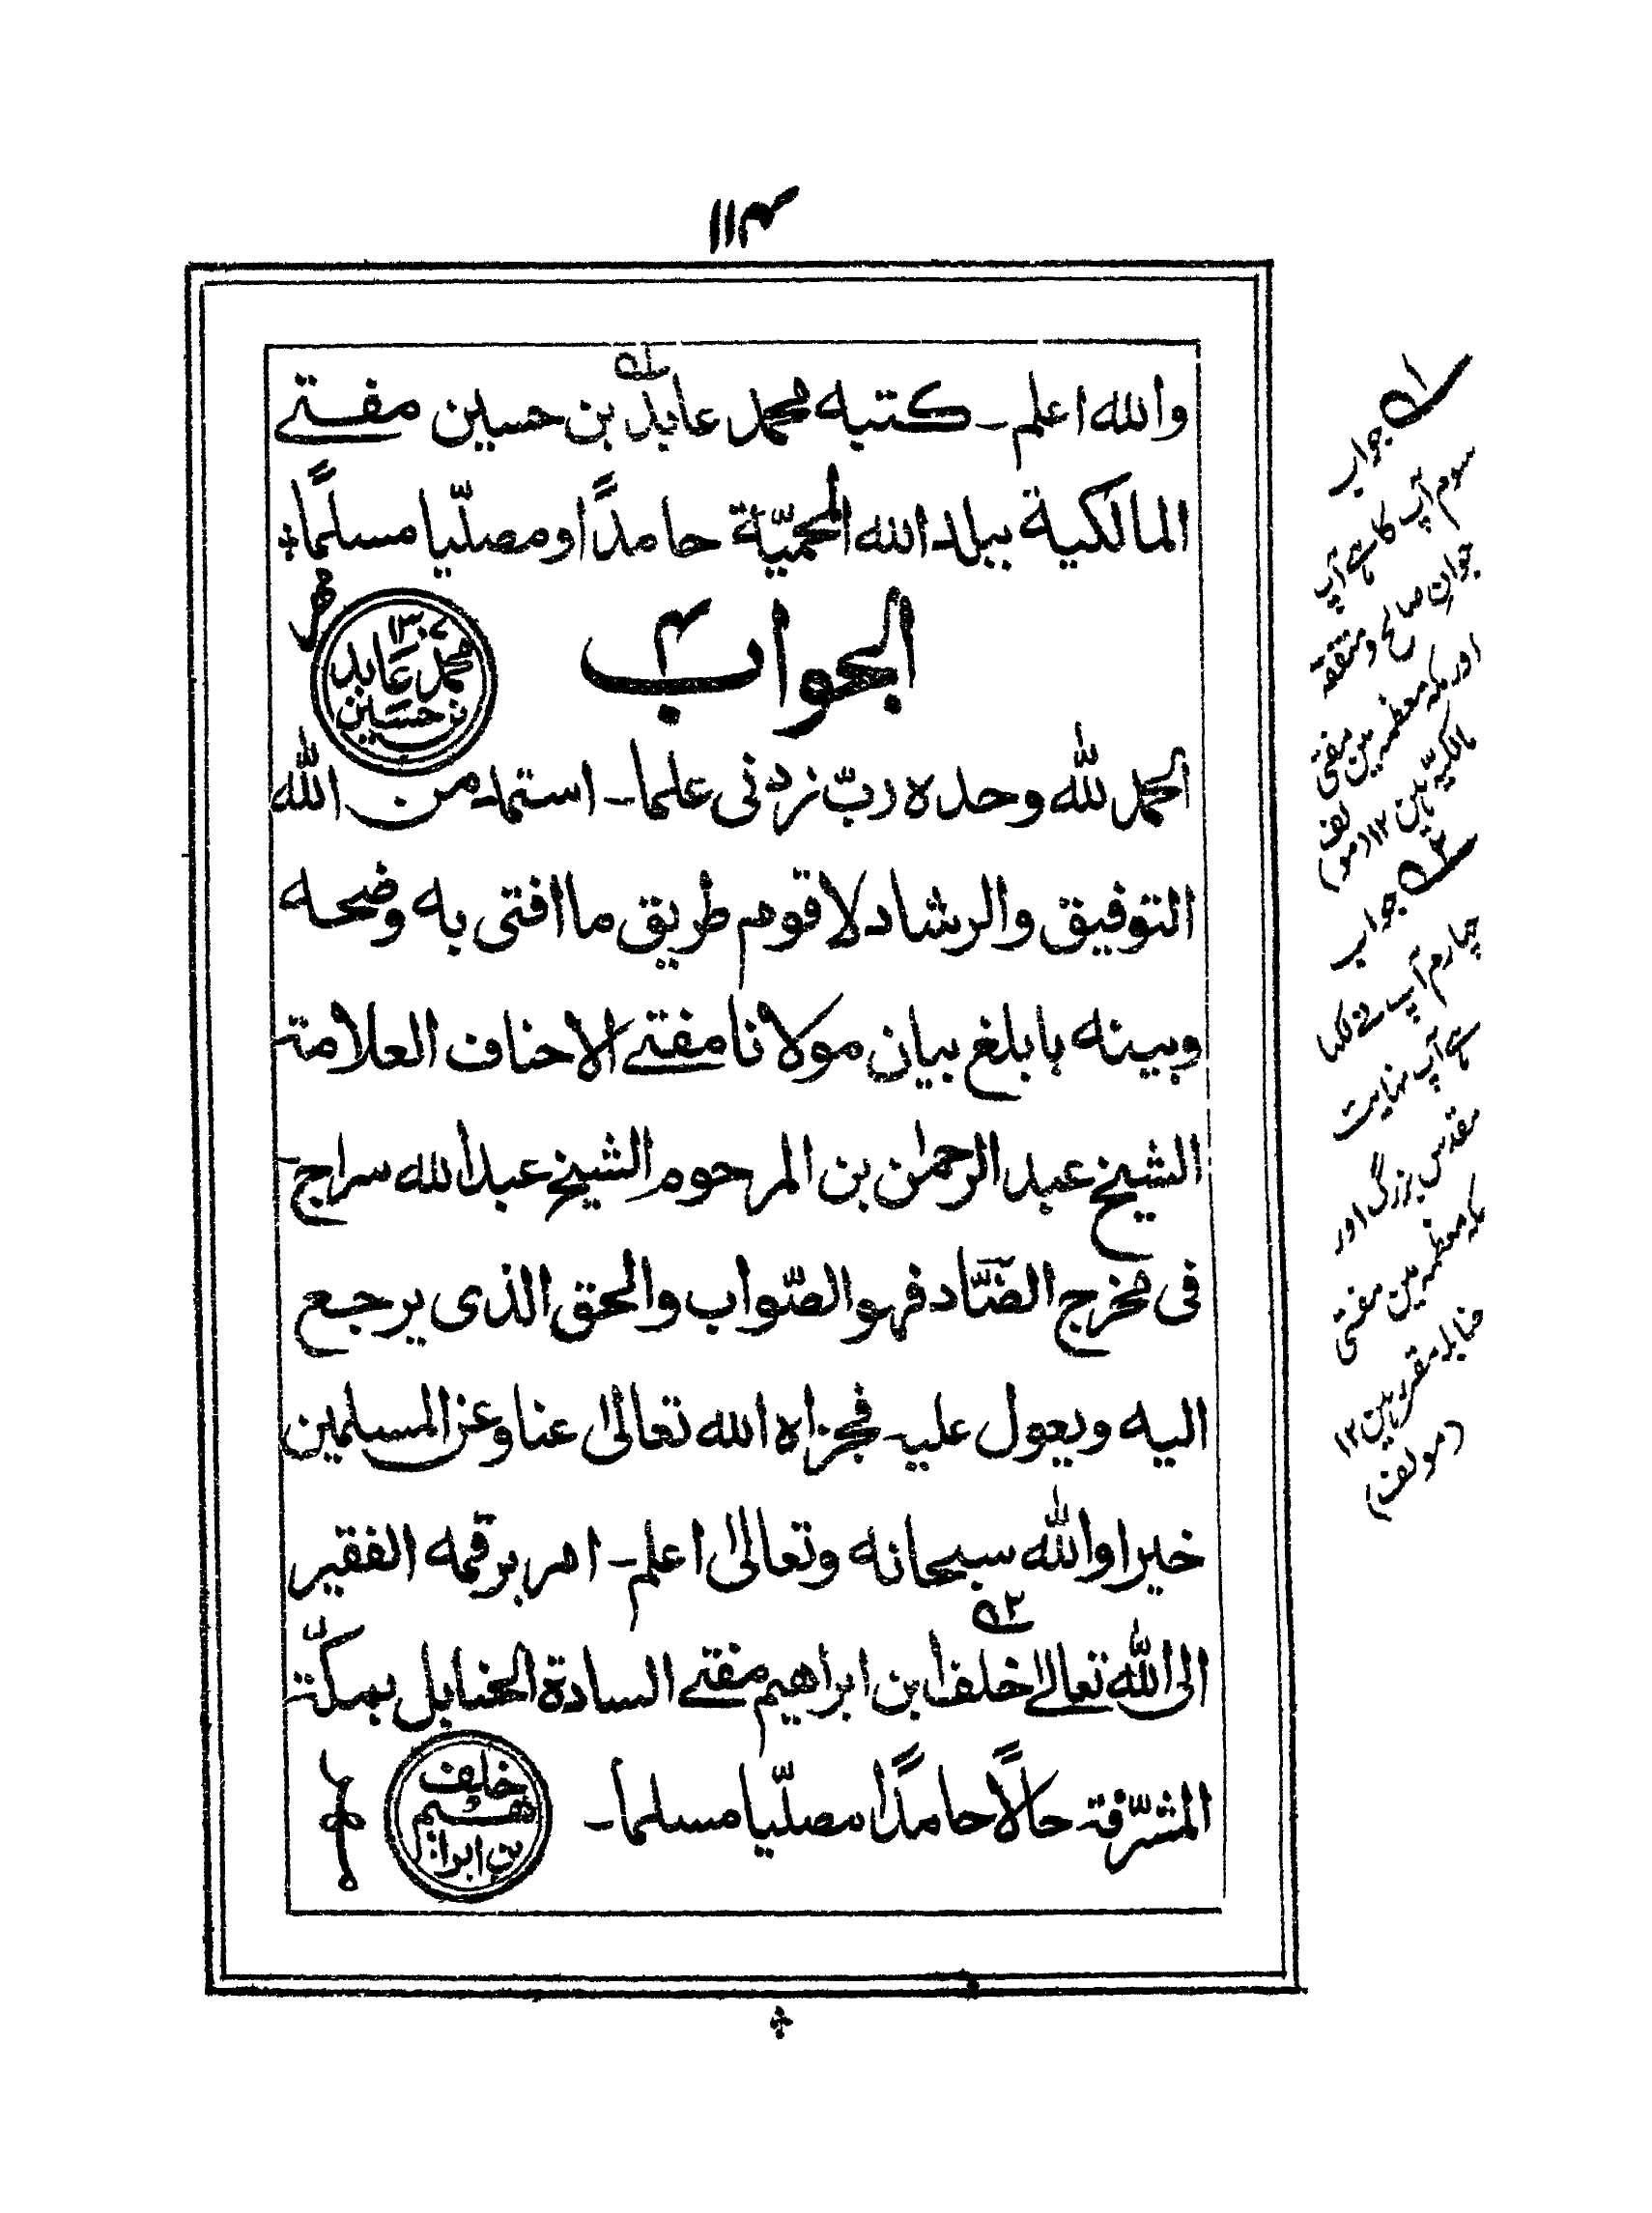 ۱۱۴
والله اعلم۔ كتبه محمد عابد۱ بن حسين مفتے
المالكية ببلد الله المحميّة حامدًا ومصليّا مسلمًا
الجواب ۴
مهر
۱۳۰۷
محمد عابد
بن حسين
الحمد لله وحده ربّ زدني علما۔ استمد من الله
التوفيق والرشاد لاقوم طريق ما افتى به وضحه
وبينه بابلغ بيان مولانا مفتے الاحناف العلامة
الشيخ عبد الرحمٰن بن المرحوم الشيخ عبد الله سراج
فى مخرج الضّاد فهو الصّواب والحق الذى يرجع
اليه ويعول عليه فجزاه الله تعالىٰ عنا وعن المسلمين
خيرا والله سبحانه وتعالىٰ اعلم۔ اھ برقمه الفقير
الى الله تعالے خلف۲ ابن ابراهيم مفتے السادة الحنابل بمكّة
المشرّفة حالًا حامدًا مصليّا مسلما۔
خلف
بن ابراهيم
۱ جواب
سوم آپ کا ہے آپ
جوان صالح و متفقہ
اور مکہ معظمہ مین مفتی
مالکیہ ہین ۱۲ (مولف)
۲ جواب
چہارم آپ نے لکہا
ہے آپ نہایت
مقدس بزرگ اور
مکہ معظمہ مین مفتی
حنابلہ مقرر ہین ۱۲
(مولف)